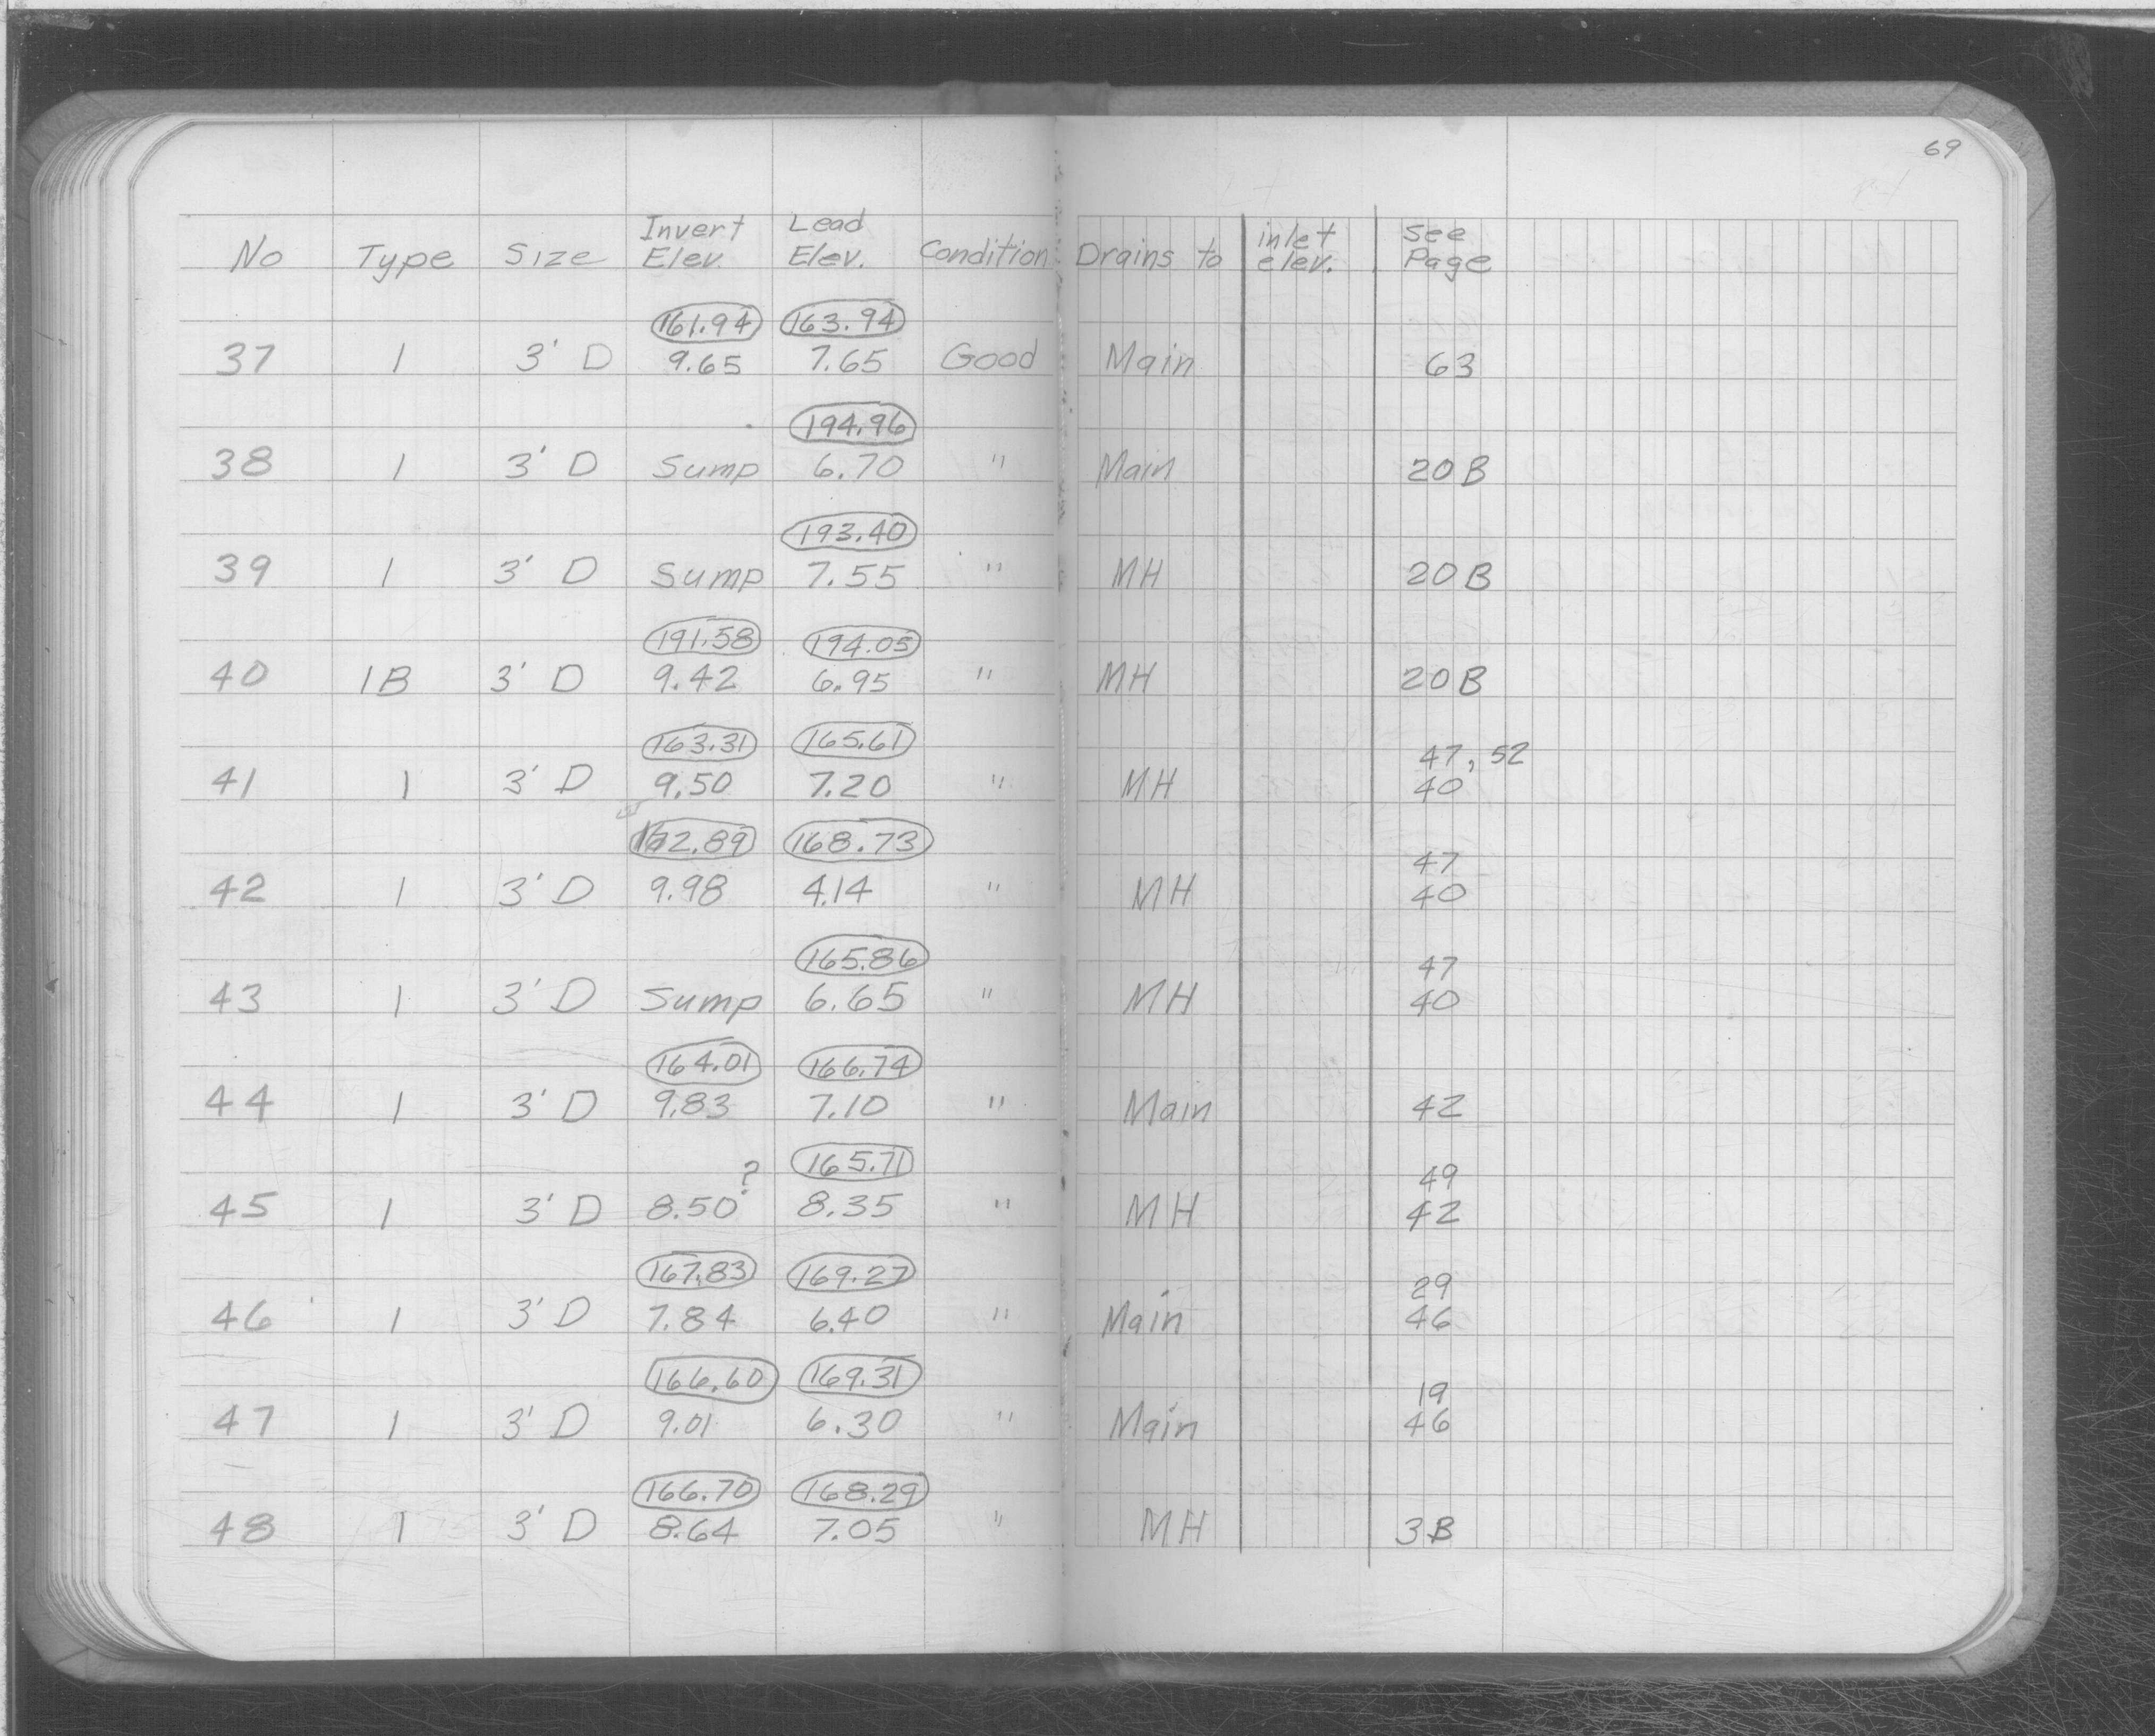 69
No Type Size Invert Elev. Lead Elev. Condition Drains to inlet elev. See Page
161.94 163.94
37 1 3' D 9.65 7.65 Good Main 63
194.96
38 1 3' D Sump 6.70 " Main 20B
193.40
39 1 3' D Sump 7.55 " MH 20B
191.58 194.05
40 1B 3' D 9.42 6.95 " MH 20B
163.31 165.61 47, 52
41 1 3' D 9.50 7.20 " MH 40
162.89 168.73 47
42 1 3' D 9.98 4.14 " MH 40
165.86 47
43 1 3' D Sump 6.65 " MH 40
164.01 166.74
44 1 3' D 9.83 7.10 " Main 42
? 165.71 49
45 1 3' D 8.50 8.35 " MH 42
167.83 169.27 29
46 1 3' D 7.84 6.40 " Main 46
166.60 169.31 19
47 1 3' D 9.01 6.30 " Main 46
166.70 168.29
48 1 3' D 8.64 7.05 " MH 3B